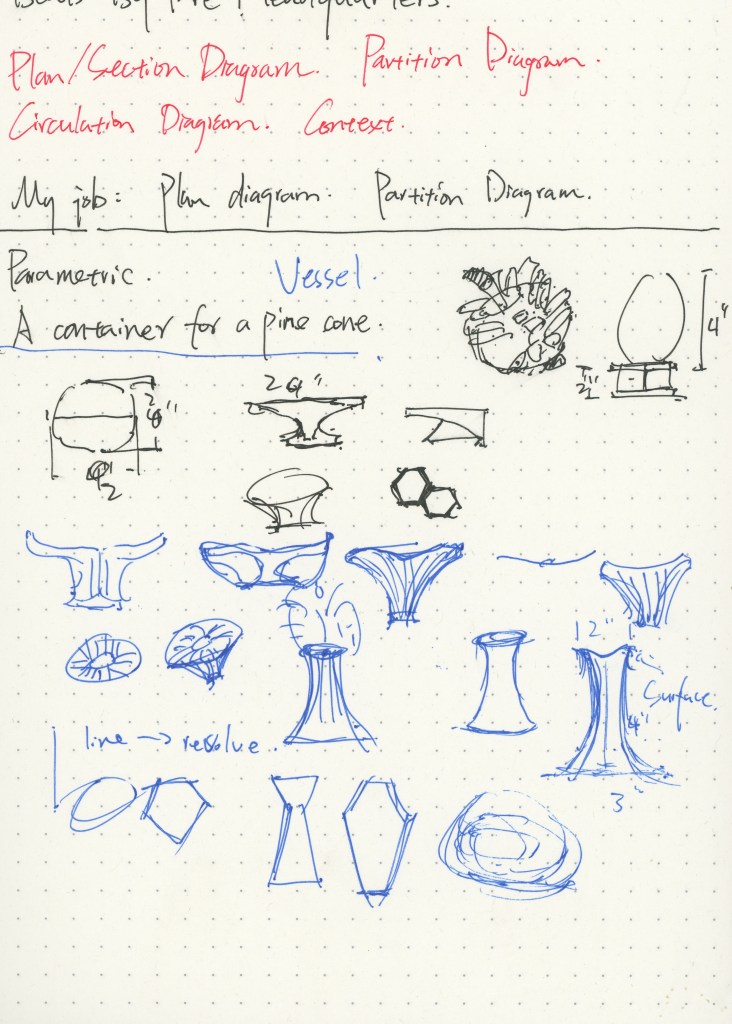 By the Headquarters.
Plan/Section Diagram. Partition Diagram.
Circulation Diagram. Context.
My job: Plan diagram. Partition Diagram.
Parametric. Vessel.
A container for a pine cone.
4"
12"
Surface.
4"
line → resolve.
3"